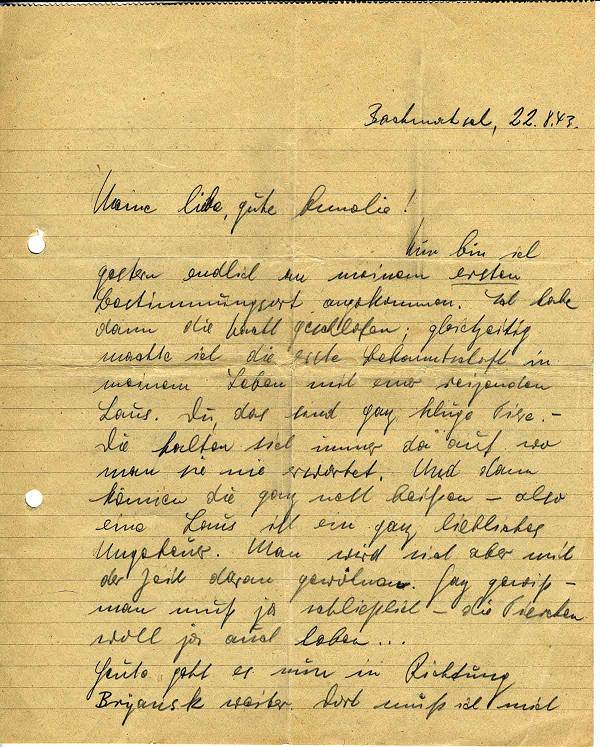 Bachmatsch, 22.8.43.
Meine liebe, gute Annelie!
Nun bin ich
gestern endlich an meinem ersten
Bestimmungsort angekommen. Ich habe
dann die Nacht geschlafen; gleichzeitig
machte ich die erste Bekanntschaft in
meinem Leben mit einer reizenden
Laus. Du, das sind ganz kluge Tiere. -
Die halten sich immer da auf, wo
man sie nie erwartet. Und dann
können die ganz nett beißen - also
eine Laus ist ein ganz liebliches
Ungeheuer. Man wird sich aber mit
der Zeit daran gewöhnen. Ganz gewiß -
man muß ja schließlich - die Tierchen
woll ja auch leben...
Heute geht es nun in Richtung
Bryansk weiter. Dort muß ich mich